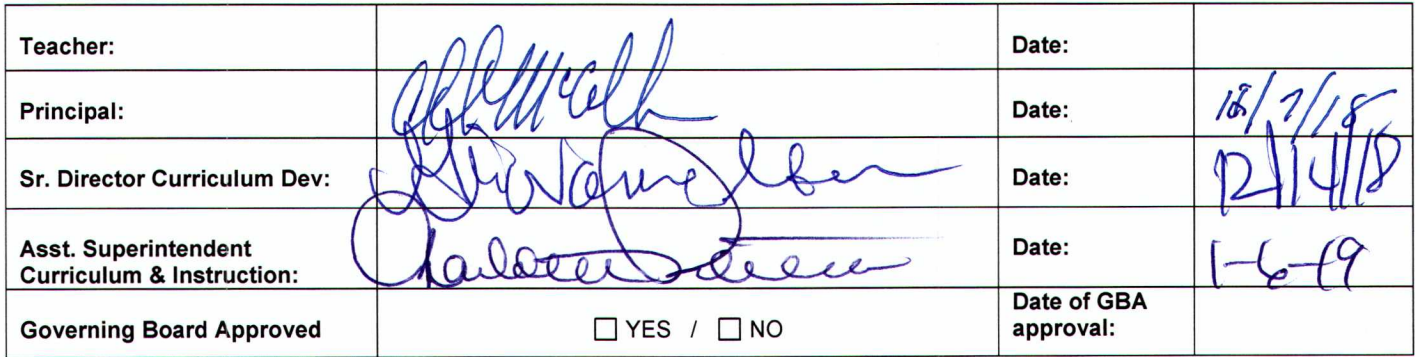 Teacher: Date:
Principal: Date:
Sr. Director Curriculum Dev: Date: 12/14/18
Asst. Superintendent
Curriculum & Instruction: Date: 1-6-19
Governing Board Approved ☐ YES / ☐ NO Date of GBA
approval: